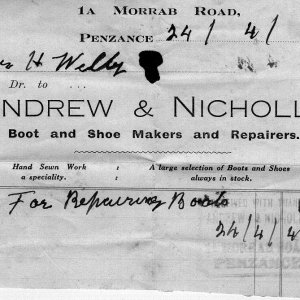 1A MORRAB ROAD,
PENZANCE 24/4/4
H Welby
Dr. to ...
NDREW & NICHOLL
Boot and Shoe Makers and Repairers.
Hand Sewn Work : A large selection of Boots and Shoes
a speciality. : always in stock.
For Repairing Boots
24/4/4